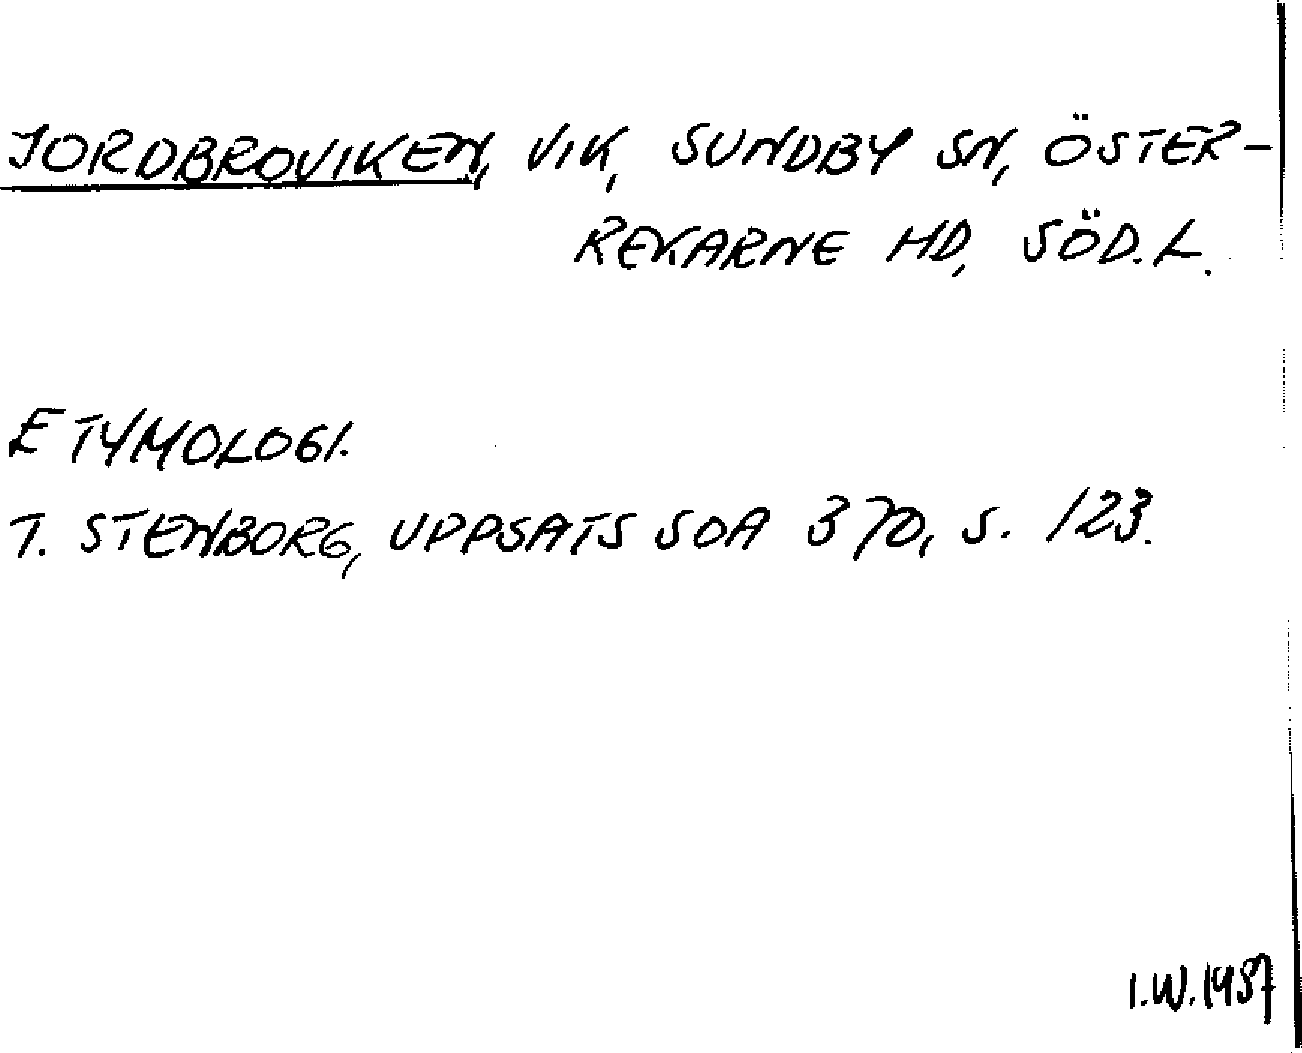 JORDBROVIKEN, VIK, SUNDBY SN, ÖSTER-
REKARNE HD, SÖD.L.
ETYMOLOGI.
T. STENBORG, UPPSATS SOA 370, S. 123.
I.W. 1987